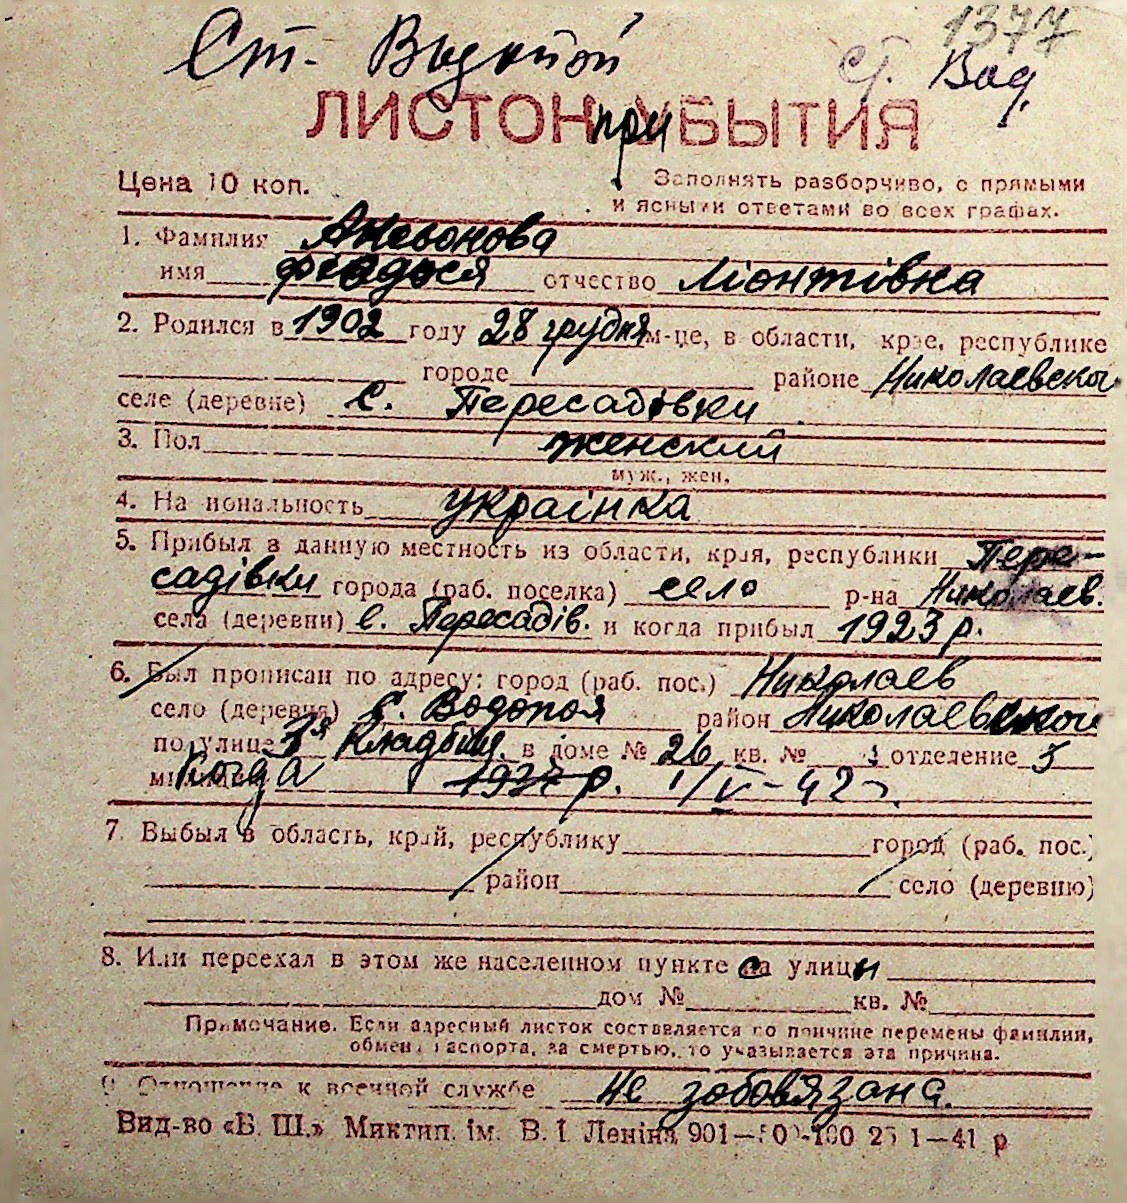 1377
Ст. Водопой ст. Вод.
ЛИСТОК при УБЫТИЯ
Цена 10 коп. Заполнять разборчиво, с прямыми
и ясными ответами во всех графах.
1. Фамилия Аксьонова
имя феодося отчество Ліонтівна
2. Родился в 1902 году 28 грудня м-це, в области, крае, республике
городе районе Николаевской
селе (деревне) с. Пересадівки
3. Пол женский
муж., жен.
4. Национальность українка
5. Прибыл в данную местность из области, края, республики Пере-
садівки города (раб. поселка) село р-на Николаев.
села (деревни) с. Пересадів. и когда прибыл 1923 р.
6. Был прописан по адресу: город (раб. пос.) Николаев
село (деревня) с. Водопоя район Николаевской
по улице 3я Кладбищ. в доме № 26 кв. № отделение 5
Когда 1927 р. 1/V-42 г.
7. Выбыл в область, край, республику город (раб. пос.)
район село (деревню)
8. Или переехал в этом же населенном пункте са улицы
дом № кв. №
Примечание. Если адресный листок составляется по причине перемены фамилии,
обмена паспорта, за смертью, то указывается эта причина.
9. Отношение к военной службе не зобовязана.
Вид-во «Б. Ш.» Миктип. ім. В. І. Леніна 901— 1—41 р